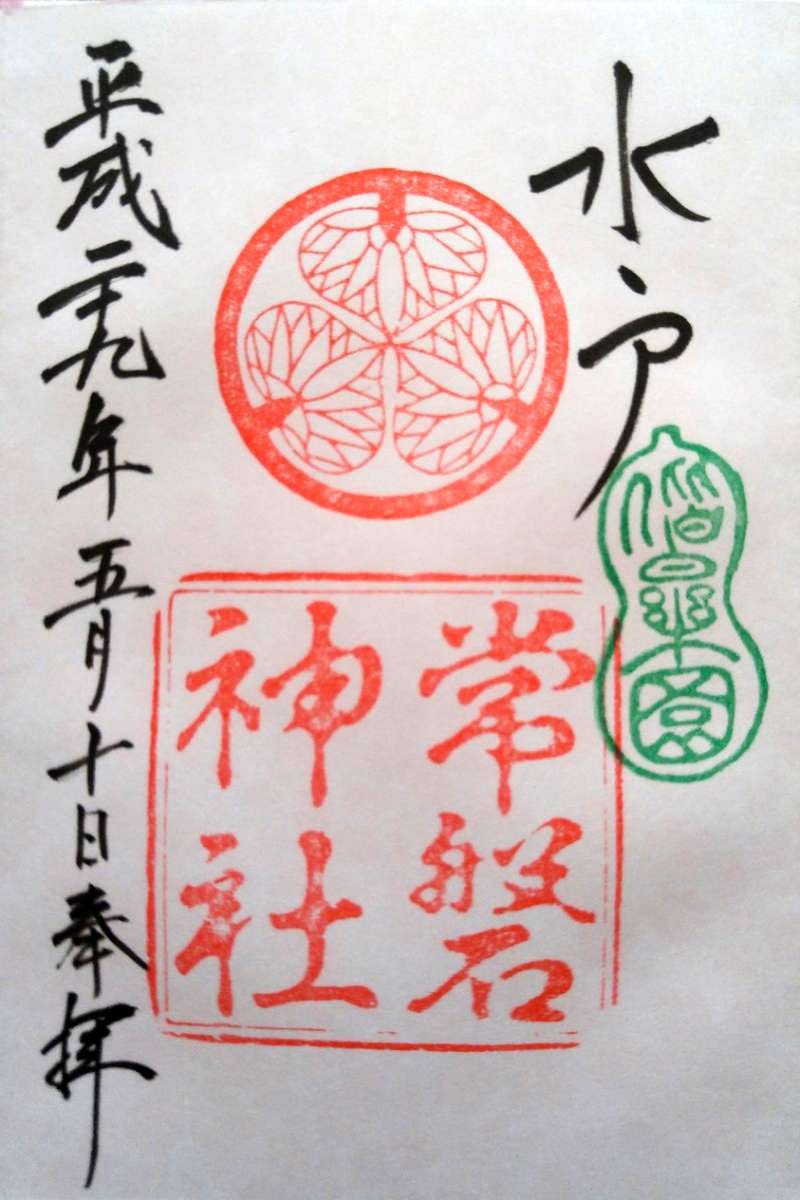 水戸
偕楽園
常磐
神社
平成二十九年五月十日奉拝